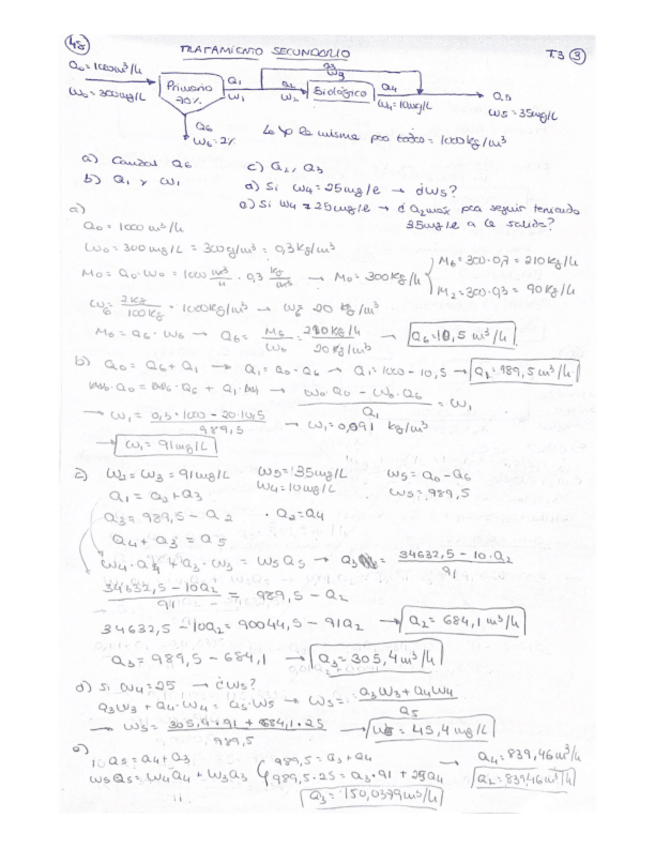 48
TRATAMIENTO SECUNDARIO
T.3 3
Q0=1000m³/h
W0=300mg/L
Primario
70%
Q1
W1
Q3
W3
Q2
W2
Biológico
Q4
W4=10mg/L
Q5
W5=35mg/L
Q6
W6=2%
la misma = 1000kg/m³
a) Caudal Q6
c) Q2, Q3
b) Q1 y W1
d) Si W4=25mg/l → ¿W5?
e) Si W4=25mg/l → ¿Q2max para seguir teniendo
35mg/l a la salida?
a)
Q0=1000 m³/h
W0=300 mg/L = 300g/m³ = 0,3 kg/m³
M0=Q0·W0=1000 m³/h · 0,3 kg/m³ → M0=300kg/h
M6=300·0,7=210kg/h
M2=300·0,3=90kg/h
W6=2kg/100kg · 1000kg/m³ → W6=20 kg/m³
M6=Q6·W6 → Q6=M6/W6=210kg/h/20kg/m³ → Q6=10,5 m³/h
b) Q0=Q6+Q1 → Q1=Q0-Q6 → Q1=1000-10,5 → Q1=989,5m³/h
W0·Q0=W6·Q6+Q1·W1 → W0·Q0-W6·Q6/Q1=W1
→ W1=0,3·1000-20·10,5/989,5 → W1=0,091 kg/m³
→ W1=91mg/L
c) W2=W3=91mg/L W5=35mg/L W5=Q0-Q6
W4=10mg/L W5=989,5
Q1=Q2+Q3
Q3=989,5-Q2 · Q2=Q4
Q4+Q3=Q5
W4·Q4+Q3·W3=W5Q5 → Q3=34632,5-10·Q2/91
34632,5-10Q2/91=989,5-Q2
34632,5-10Q2=90044,5-91Q2 → Q2=684,1m³/h
Q3=989,5-684,1 → Q3=305,4m³/h
d) Si W4=25 → ¿W5?
Q3W3+Q4·W4=Q5·W5 → W5=Q3W3+Q4W4/Q5
→ W5=305,4·91+684,1·25/989,5 → W5=45,4mg/L
e)
Q5=Q4+Q3
W5Q5=W4Q4+W3Q3
989,5=Q3+Q4
989,5·25=Q3·91+25Q4
→ Q4=839,46m³/h
Q2=839,46m³/h
Q3=150,0399m³/h